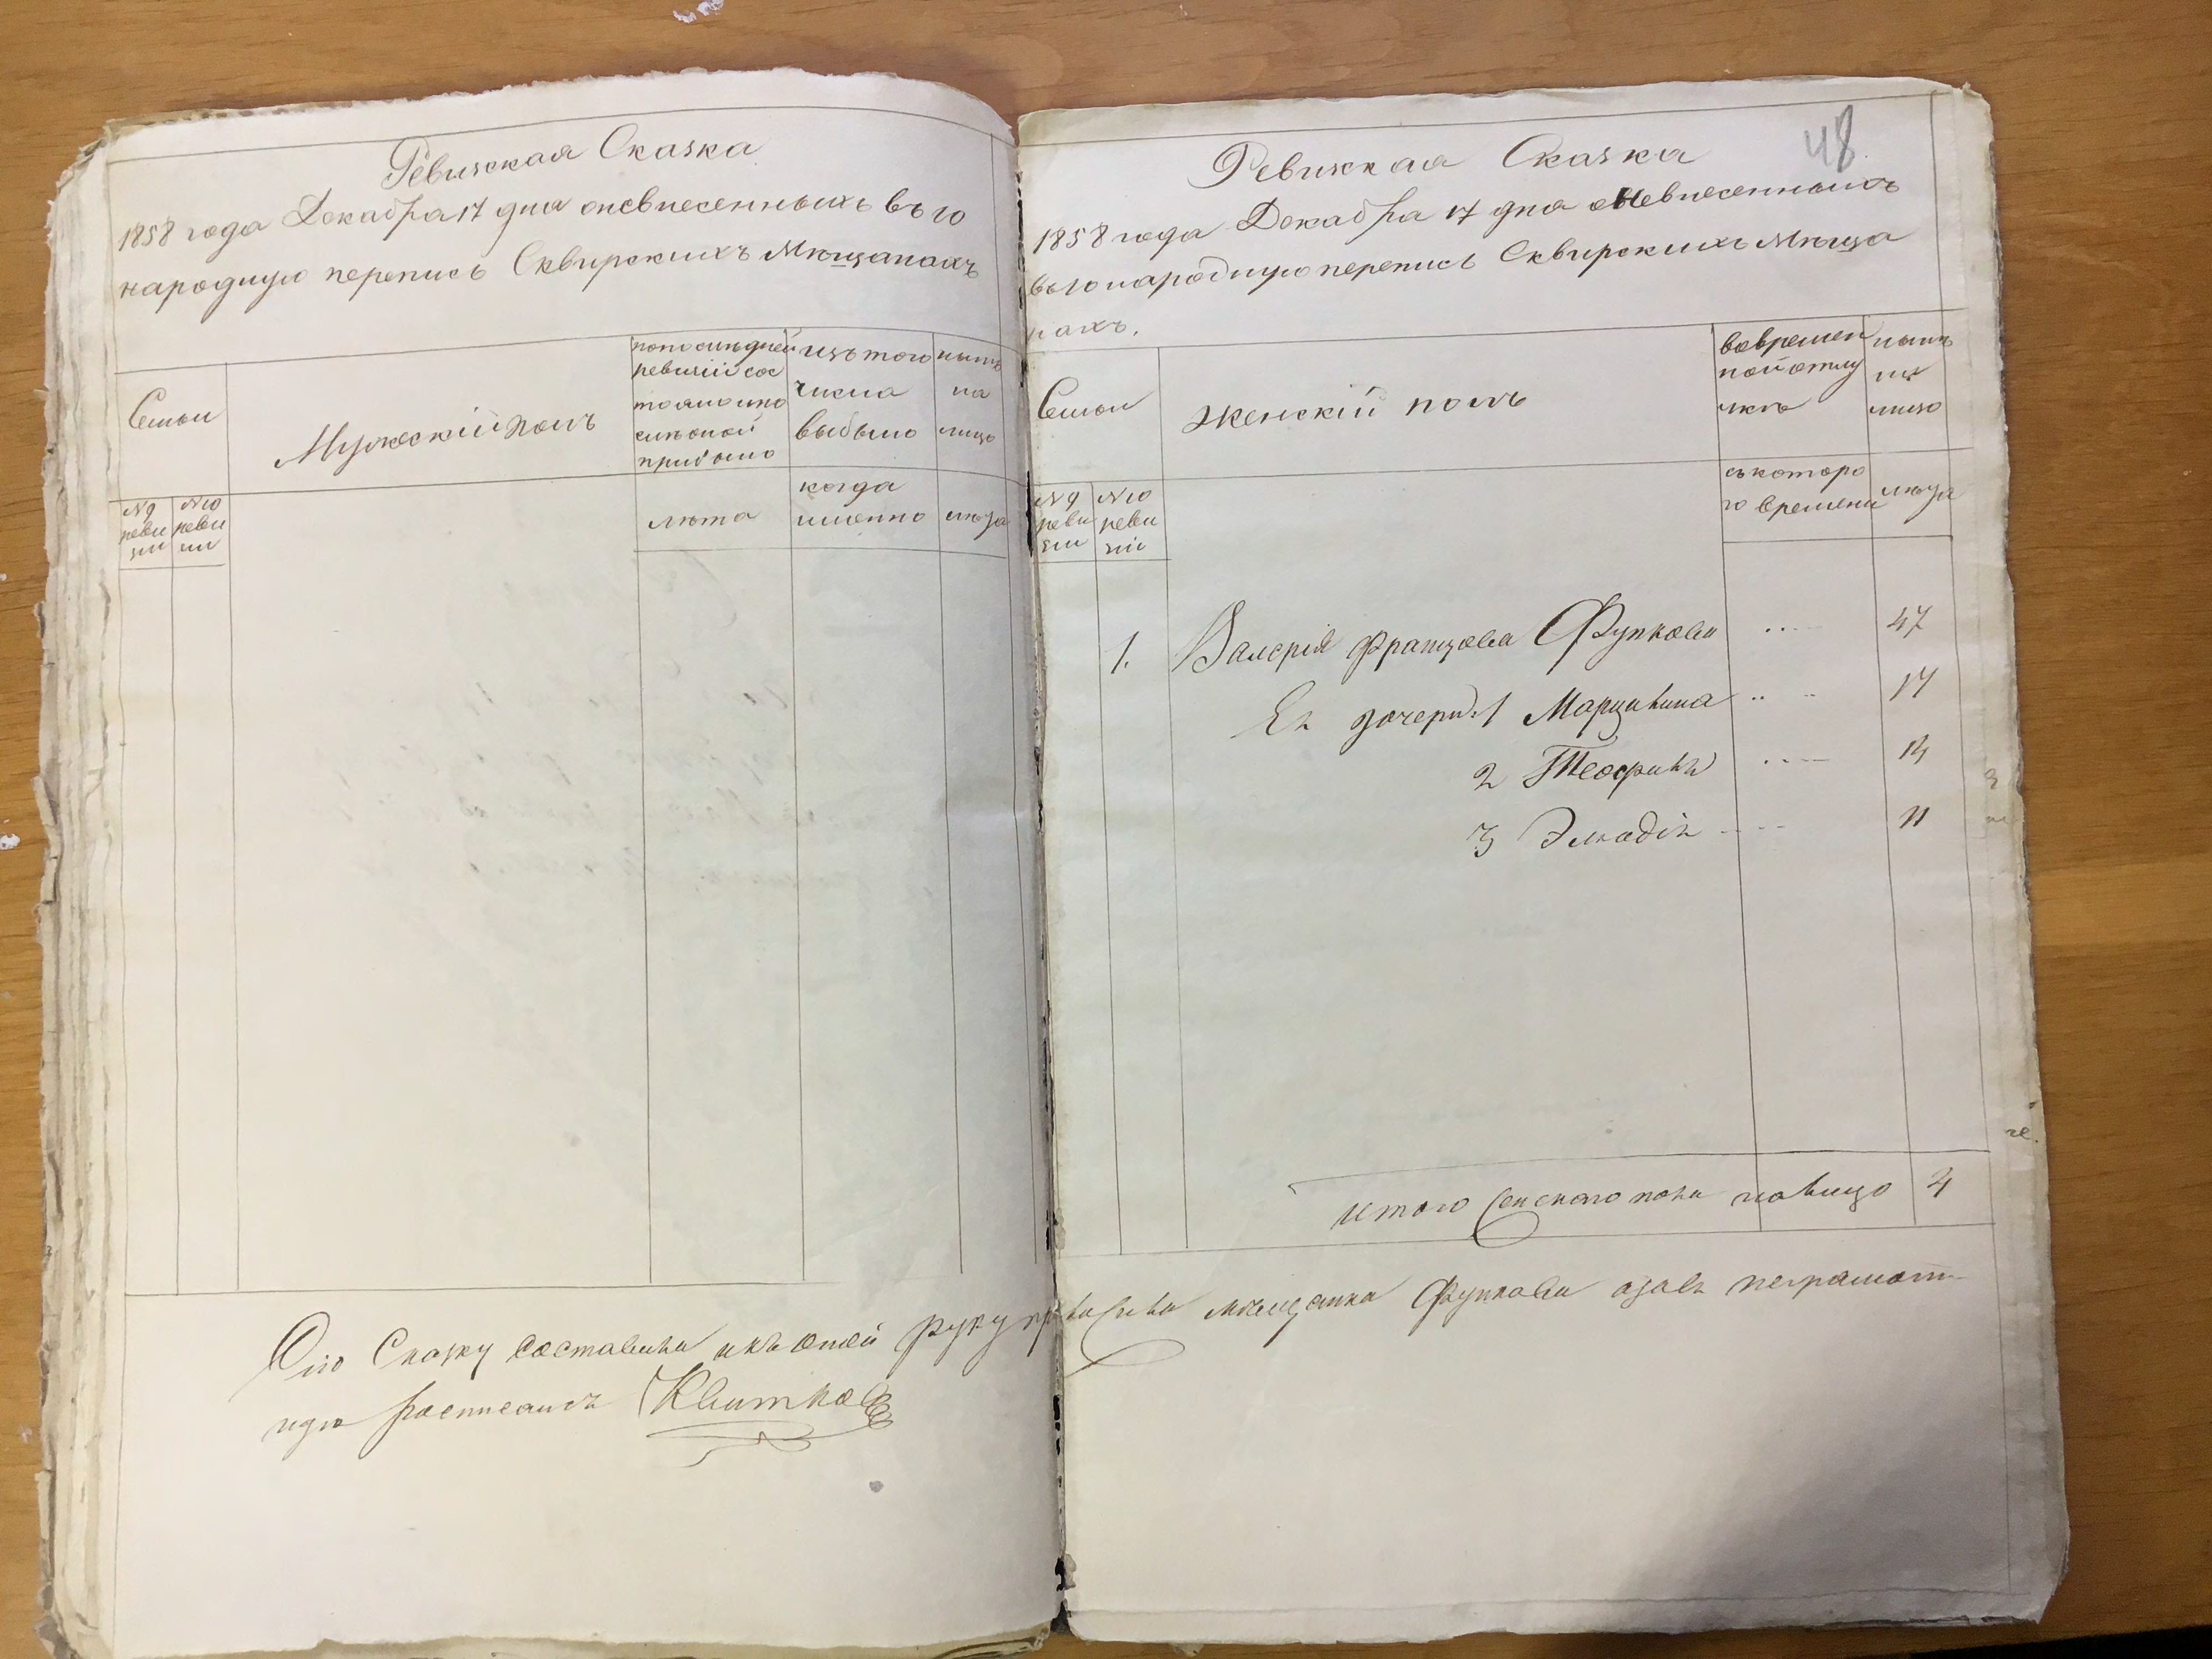 Ревизская Сказка
1858 года Декабра 17 дна оневнесенныхъ въ 10
народную перепись Сквирскихъ Мѣщанахъ
Семьи
Мужескій полъ
попослѣдней
ревизіи сос
тояло ипо
слѣ оной
прибыло
изъ того
числа
выбыло
нынѣ
на
лицо
№ 9
реви
зіи
№ 10
реви
зіи
лѣта
когда
именно
лѣта
48
Ревизская Сказка
1858 года Декабра 17 дна оневнесенныхъ
въ 10 народную перепись Сквирскихъ Мѣща
нахъ.
Семьи
Женскій полъ
вовремен
ной отлу
чкѣ
нынѣ
на
лицо
№ 9
реви
зіи
№ 10
реви
зіи
съ которо
го времени
лѣта
1. Валерія Францова Функова 47
Ея дочери: 1 Марцелина 17
2 Теофила 14
3 Эмилія 11
итого женского пола на лицо 4
Сію Сказку составила и къ оной руку приложила мѣщанка Функова а за нея неграмот-
ную росписался Квитков